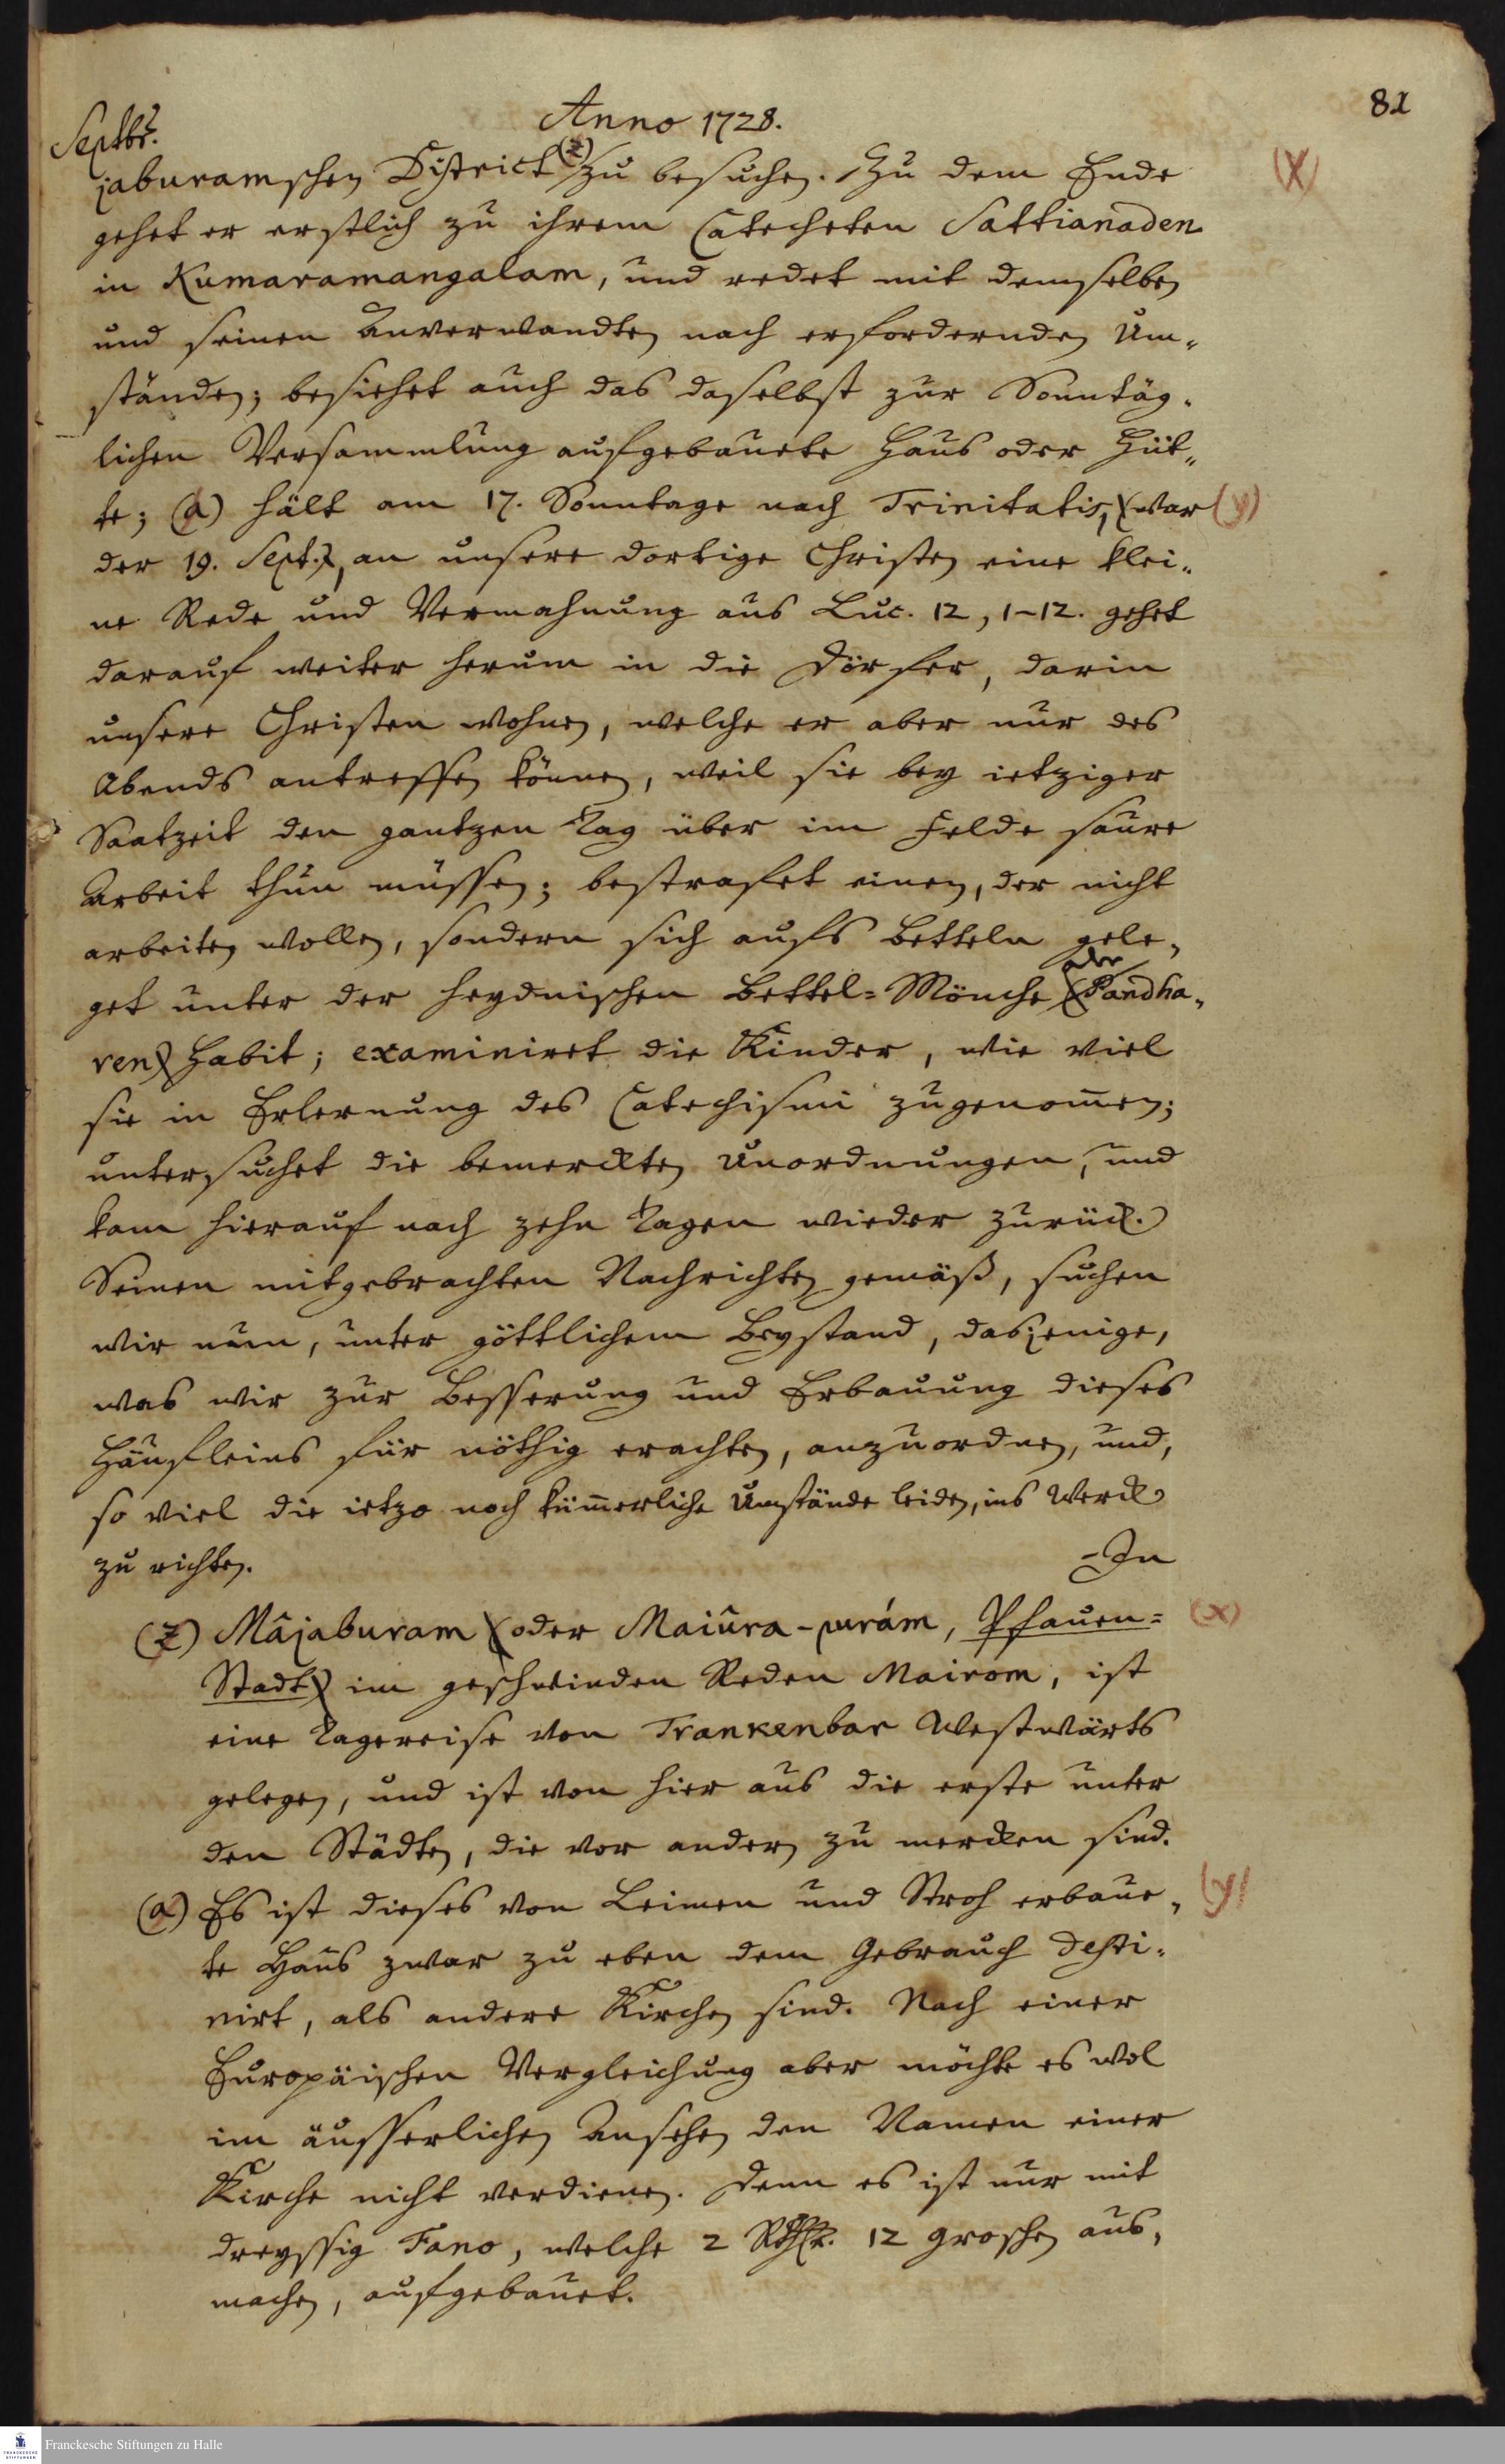 81
Anno 1728.
Septbr.
jaburamschen District (z) zu besuchen. Zu dem Ende (x)
gehet er erstlich zu ihrem Catecheten Sattianaden
in Kumaramangalam, und redet mit demselben
und seinen Anverwandten nach erfordernden Um-
ständen; besiehet auch das daselbst zur Sonntäg-
lichen Versammlung aufgebauete Haus oder Hüt-
te; (a) hält am 17. Sonntage nach Trinitatis, (war (y)
der 19. Sept.), an unsere dortige Christen eine klei-
ne Rede und Vermahnung aus Luc. 12, 1-12. gehet
darauf weiter herum in die Dörfer, darin
unsere Christen wohnen, welche er aber nur des
Abends antreffen können, weil sie bey ietziger
Saatzeit den gantzen Tag über im Felde saure
Arbeit thun müssen; bestrafet einen, der nicht
arbeiten wollen, sondern sich aufs Betteln gele-
get unter der heydnischen Bettel-Mönche oder (Pandha-
ren) Habit; examiniret die Kinder, wie viel
sie in Erlernung des Catechismi zugenom̄en;
untersuchet die bemerckten Unordnungen, und
kam hierauf nach zehn Tagen wieder zurück.
Seinen mitgebrachten Nachrichten gemäß, suchen
wir nun, unter göttlichem Beystand, dasjenige,
was wir zur Besserung und Erbauung dieses
Häufleins für nöthig erachten, anzuordnen, und,
so viel die ietzo noch küm̄erliche Umstände leiden, ins Werck
zu richten.
-In
(z) Mâjaburam (oder Maiûra-purám, Pfauen= (x)
Stadt) im geschwinden Reden Mairom, ist
eine Tagereise von Trankenbar Westwärts
gelegen, und ist von hier aus die erste unter
den Städten, die vor andern zu mercken sind.
(a) Es ist dieses von Leimen und Stroh erbaue- (y)
te Haus zwar zu eben dem Gebrauch desti-
nirt, als andere Kirchen sind. Nach einer
Europäischen Vergleichung aber möchte es wol
im äusserlichen Ansehen den Namen einer
Kirche nicht verdienen. Denn es ist nur mit
dreyssig Fano, welche 2 Rthlr. 12 groschen aus-
machen, aufgebauet.
Franckesche Stiftungen zu Halle